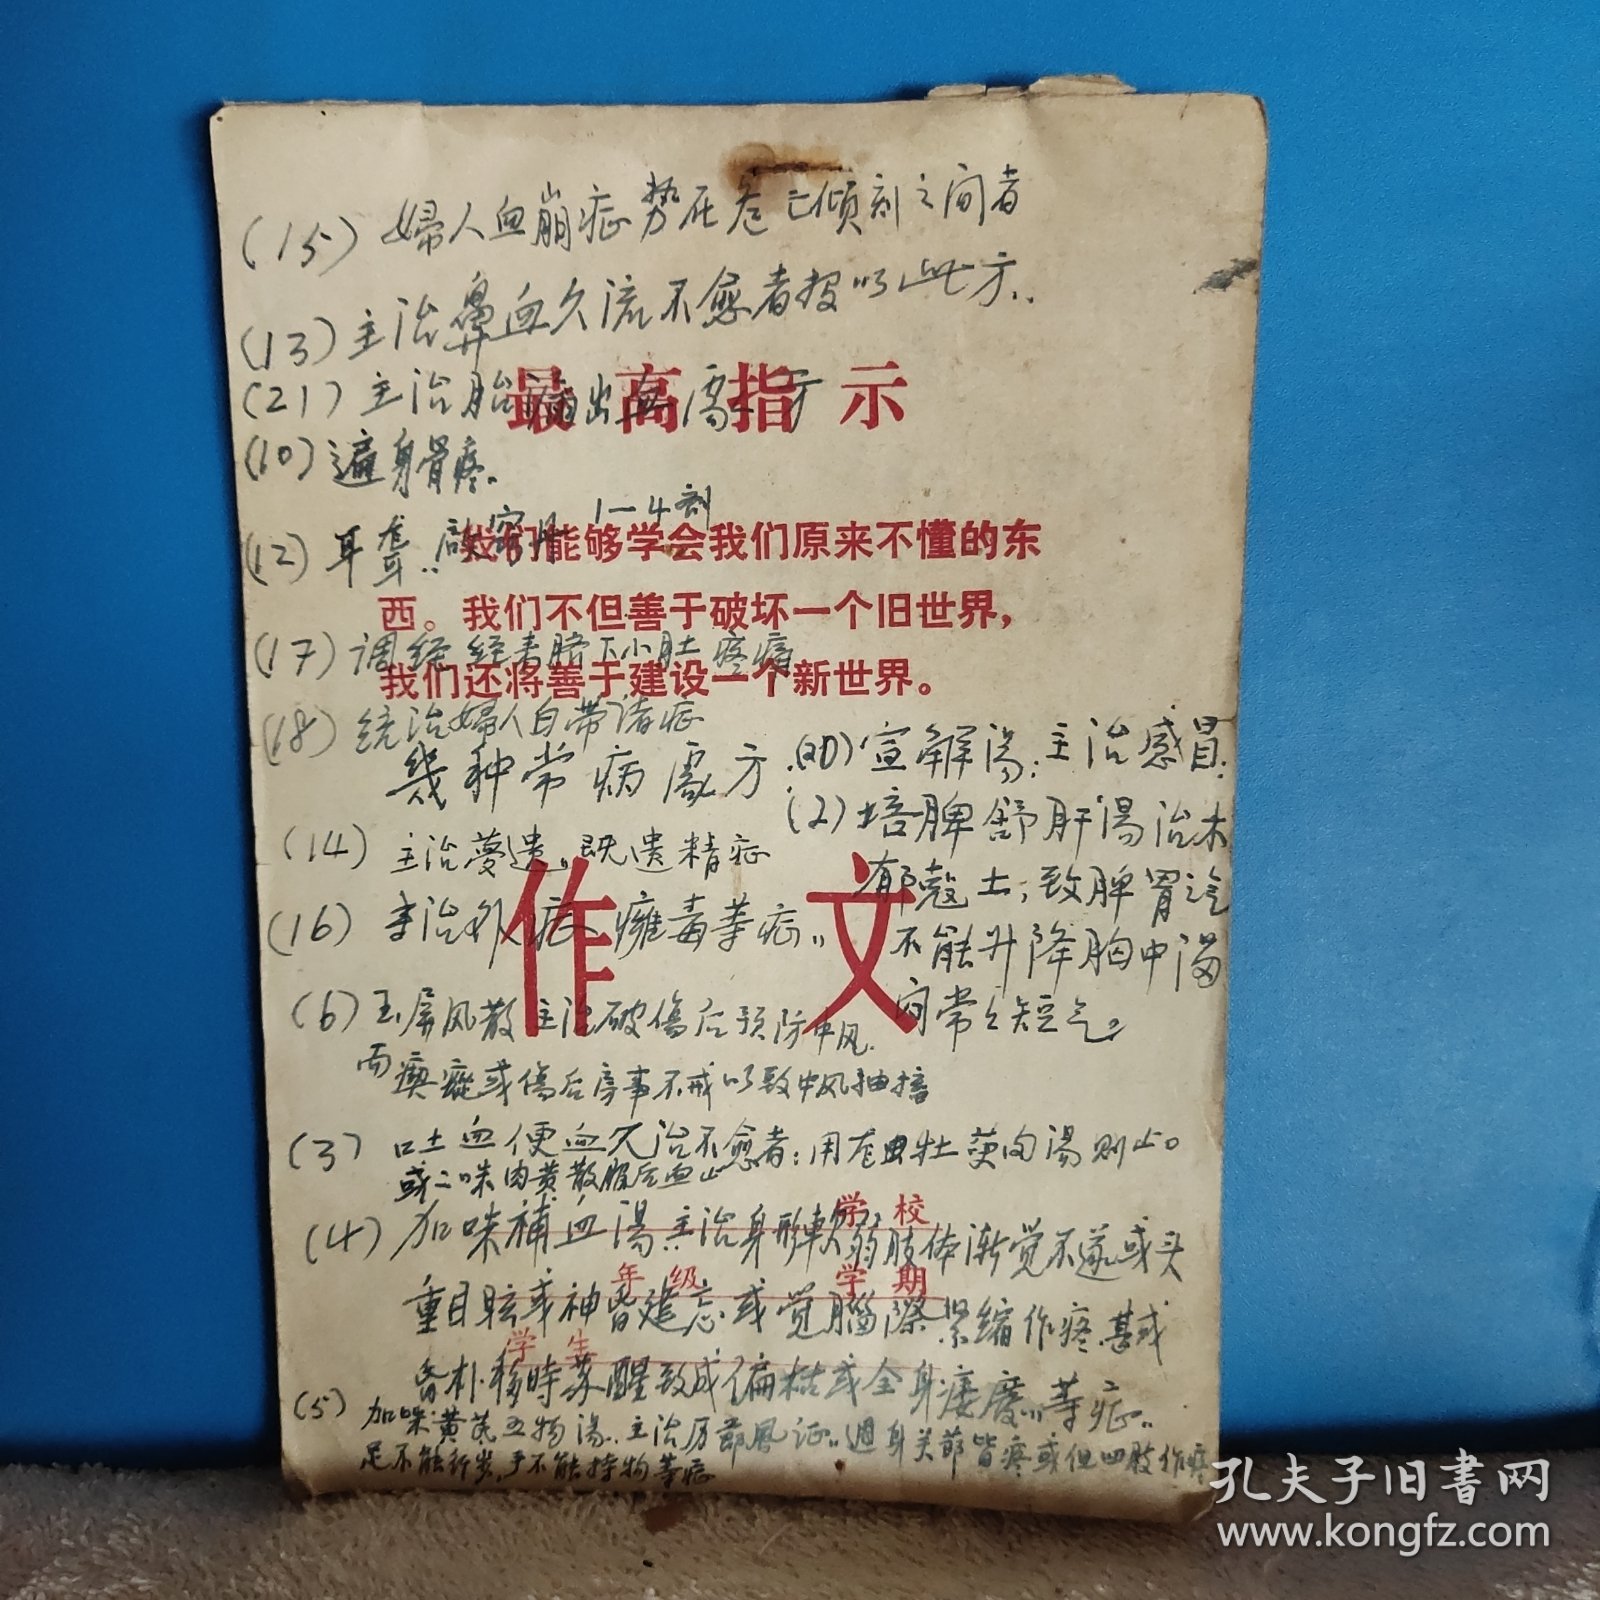 (15) 婦人血崩症势在危亡倾刻之间者
(13) 主治鼻血久流不愈者投以此方..
最高指示
(21) 主治胎 出血 方
(10) 遍身骨疼.
1—4剂
(12) 耳聋..
我们能够学会我们原来不懂的东
西。我们不但善于破坏一个旧世界，
(17) 调经 经来脐下小肚疼痛
我们还将善于建设一个新世界。
(18) 统治婦人白带诸症
幾种常病 方.
宣解湯:主治感冒.
(2) 培脾舒肝湯治木
郁尅土,致脾胃气
不能升降胸中满
闷常々短气.
(14) 主治夢遗,,既遗精症
作文
(16) 主治外症 癰毒等症,,
(6) 玉屏风散主治破傷后预防中风.
而瘈瘲或傷后房事不戒以致中风抽搐
(3) 口吐血便血久治不愈者:用 湯则止
或二味肉黄散服后血止
学校
(4) 加味補血湯:主治身形軟弱肢体渐觉不遂或头
年级 学期
重目眩或神昏健忘或觉腦際紧缩作疼.甚或
学生
昏朴移時苏醒致成偏枯或全身痿廢,,等症..
(5) 加味黄芪五物湯..主治历節風证,,週身关節皆疼或但四肢作疼
足不能行步,手不能持物等症
孔夫子旧书网
www.kongfz.com